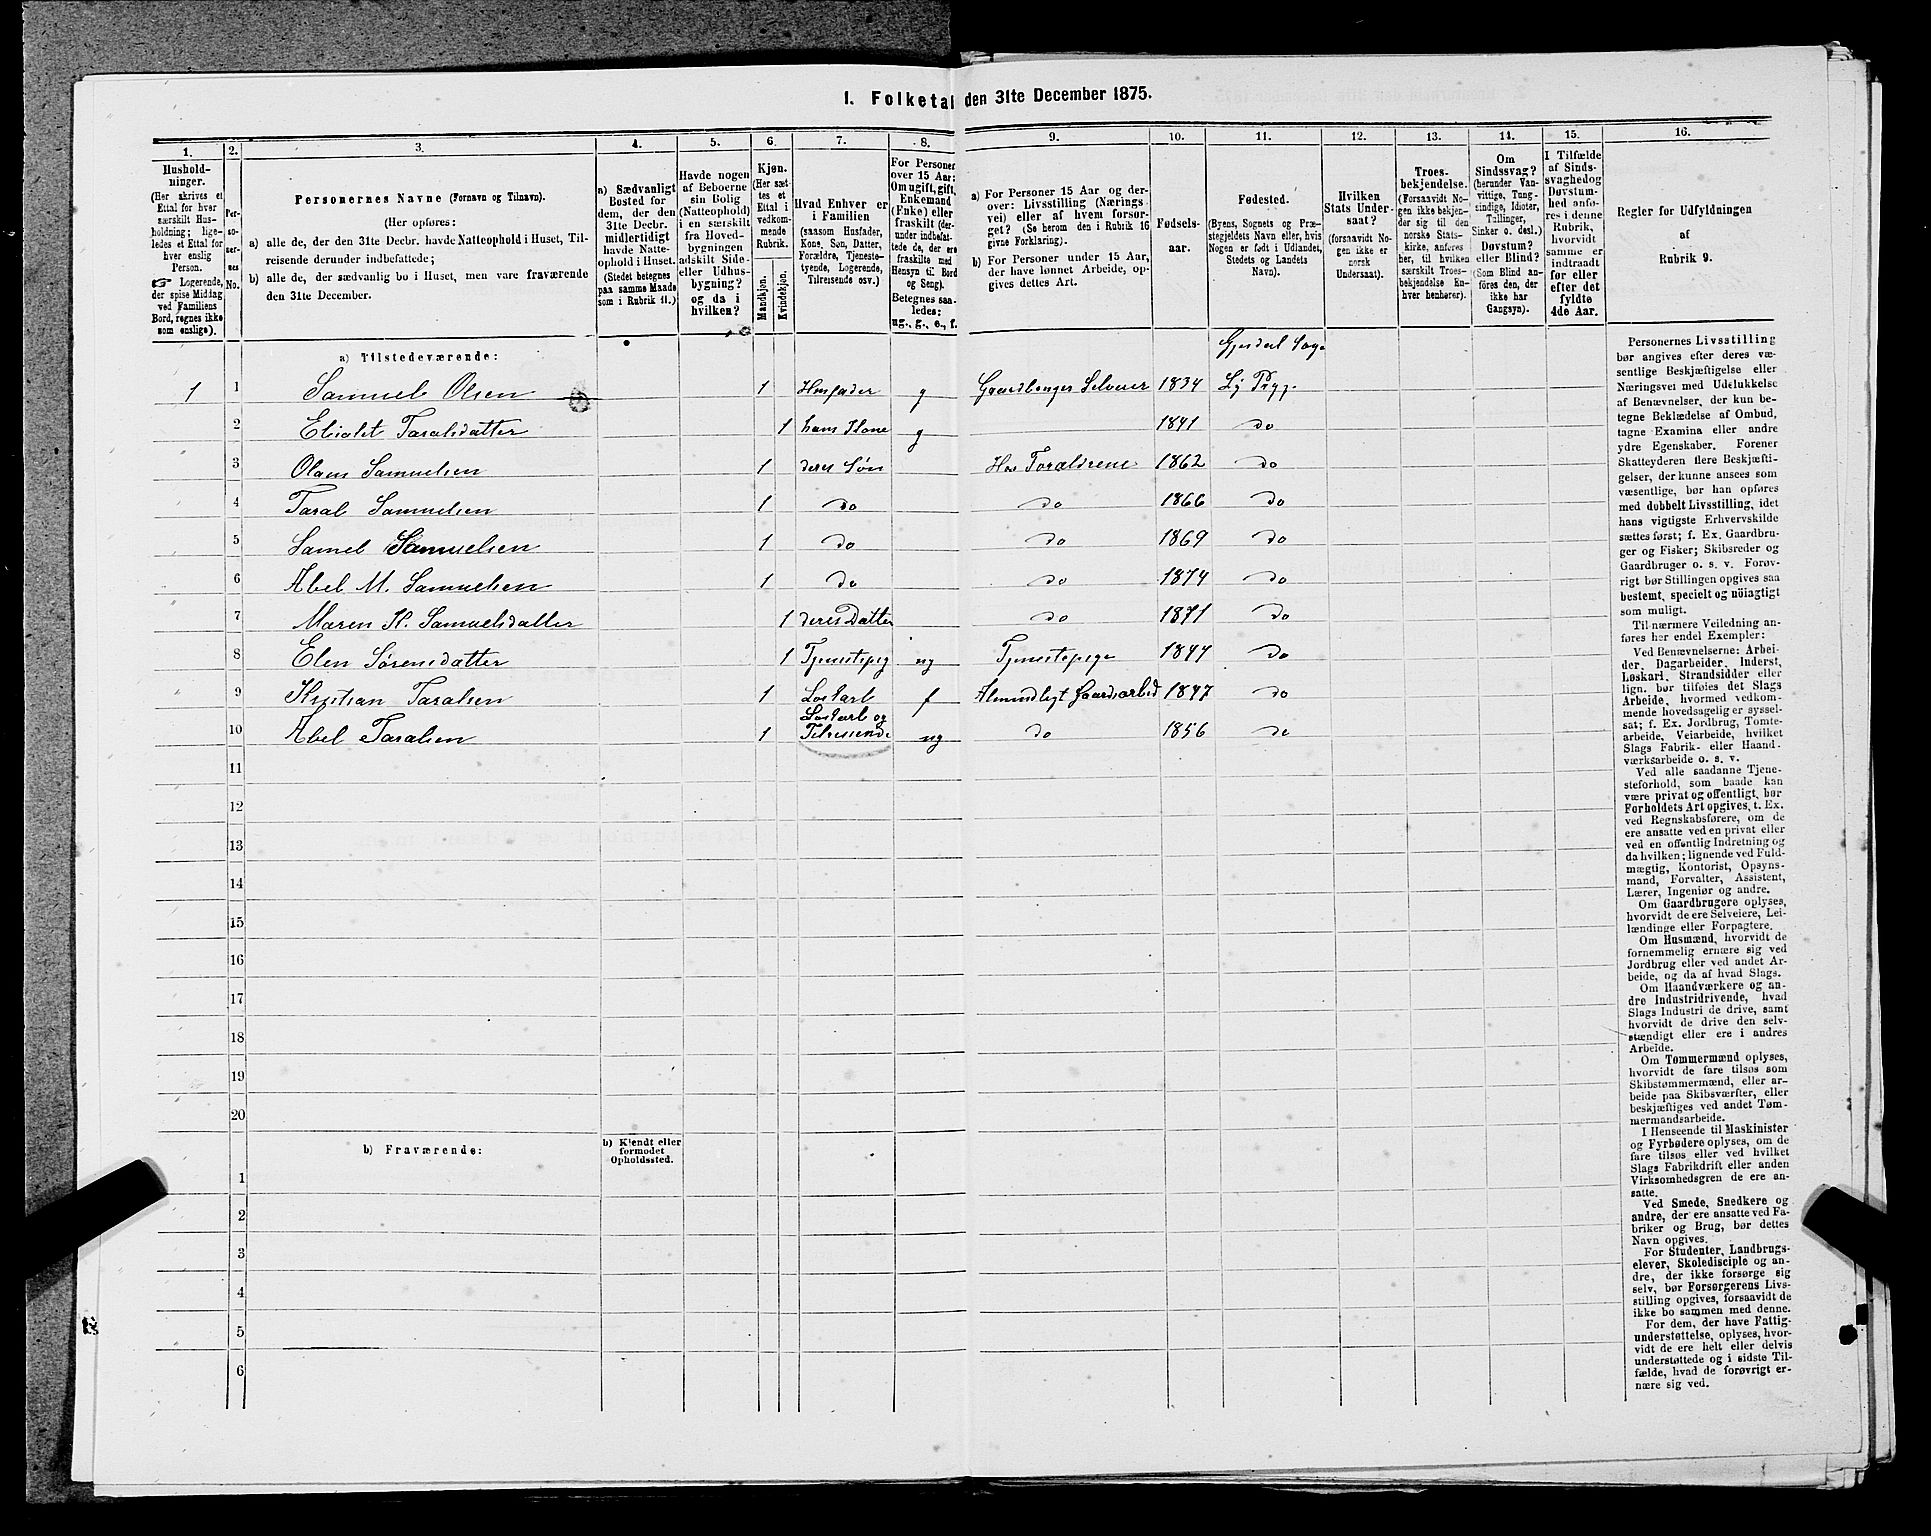 I. Folketal den 31te December 1875.
1. 2. 3. 4. 5. 6. 7. 8. 9. 10. 11. 12. 13. 14. 15. 16.
Hushold-
ninger.
(Her skrives et
Ettal for hver
særskilt Hus-
holdning; lige-
ledes et Ettal for
hver enslig
Person.
☞ Logerende,
der spise Middag
ved Familiens
Bord, regnes ikke
som enslige).
Per-
so-
ner-
nes
No.
Personernes Navne (Fornavn og Tilnavn).
(Her opføres:
a) alle de, der den 31te Decbr. havde Natteophold i Huset, Til-
reisende derunder indbefattede;
b) alle de, der sædvanlig bo i Huset, men vare fraværende
den 31te December.
a) Sædvanligt
Bosted for
dem, der den
31te Decbr.
midlertidigt
havde Natte-
ophold i Huset.
(Stedet betegnes
paa samme Maade
som i Rubrik 11.)
Havde nogen
af Beboerne
sin Bolig
(Natteophold)
i en særskilt
fra Hoved-
bygningen
adskilt Side-
eller Udhus-
bygning?
og da i
hvilken?
Kjøn.
(Her sæt-
tes et
Ettal i
vedkom-
mende
Rubrik.
Mandkjøn.
Kvindekjøn.
Hvad Enhver er
i Familien
(saasom Husfader,
Kone, Søn, Datter,
Forældre, Tjeneste-
tyende, Logerende,
Tilreisende osv.)
For Personer
over 15 Aar:
Om ugift, gift,
Enkemand
(Enke) eller
fraskilt (der-
under indbefat-
tede de, der ere
fraskilte med
Hensyn til Bord
og Seng).
Betegnes saa-
ledes:
ug., g., e., f.
a) For Personer 15 Aar og der-
over: Livsstilling (Nærings-
vei) eller af hvem forsør-
get? (Se herom den i Rubrik 16
givne Forklaring).
b) For Personer under 15 Aar,
der have lønnet Arbeide, op-
gives dettes Art.
Fødsels-
aar.
Fødested.
(Byens, Sognets og Præ-
stegjeldets Navn eller, hvis
Nogen er født i Udlandet,
Stedets og Landets
Navn).
Hvilken
Stats Under-
saat?
(forsaavidt No-
gen ikke er
norsk
Undersaat).
Troes-
bekjendelse.
(Forsaavidt No-
gen ikke bekjen-
der sig til den
norske Stats-
kirke, anføres
her, til hvilken
særskilt Troes-
bekjendelse En-
hver henhører).
Om
Sindssvag?
(herunder Van-
vittige, Tung-
sindige, Idioter,
Tullinger,
Sinker o. desl.)
Døvstum?
eller Blind?
(Som Blind an-
føres den, der
ikke har
Gangsyn).
I Tilfælde
af Sinds-
svaghed og
Døvstum-
hed anfø-
res i denne
Rubrik,
hvorvidt
samme er
indtraadt
før eller
efter det
fyldte
4de Aar.
Regler for Udfyldningen
af
Rubrik 9.
a) Tilstedeværende:
Gjesdal Sogn
1 1 Samuel Olsen 1 Husfader g Gaardbruger Selveier 1834 Ly Prgj.
2 Elisabet Taralsdatter 1 hans Kone g 1841 do
3 Olaus Samuelsen 1 deres Søn Hos Forældrene 1862 do
4 Taral Samuelsen 1 do do 1866 do
5 Samel Samuelsen 1 do do 1869 do
6 Abel M. Samuelsen 1 do do 1874 do
7 Maren K. Samuelsdatter 1 deres Datter do 1871 do
8 Elen Sørensdatter 1 Tjenestepig ug Tjenestepige 1844 do
9 Kristian Taralsen 1 Loskarl f Almindligt Gaardsarbeid 1847 do
Loskarl og
10 Abel Taralsen 1 Tilreisende ug do 1856 do
11
12
13
14
15
16
17
18
19
20
b) Fraværende:
b) Kjendt eller
formodet
Opholdssted.
1
2
3
4
5
6
Personernes Livsstilling
bør angives efter deres væ-
sentlige Beskjæftigelse eller
Næringsvei med Udelukkelse
af Benævnelser, der kun be-
tegne Beklædelse af Ombud,
tagne Examina eller andre
ydre Egenskaber. Forener
Skatteyderen flere Beskjæfti-
gelser, der kunne ansees som
væsentlige, bør han opføres
med dobbelt Livsstilling, idet
hans vigtigste Erhvervskilde
sættes først; f. Ex. Gaardbru-
ger og Fisker; Skibsreder og
Gaardbruger o. s. v. Forøv-
rigt bør Stillingen opgives saa
bestemt, specielt og nöiagtigt
som muligt.
Til nærmere Veiledning an-
føres her endel Exempler:
Ved Benævnelserne: Arbei-
der, Dagarbeider, Inderst,
Løskarl, Strandsidder eller
lign. bør tilføies det Slags
Arbeide, hvormed vedkom-
mende hovedsagelig er syssel-
sat; f. Ex. Jordbrug, Tomte-
arbeide, Veiarbeide, hvilket
Slags Fabrik- eller Haand-
værksarbeide o. s. v.
Ved alle saadanne Tjene-
steforhold, som baade kan
være privat og offentligt, bør
Forholdets Art opgives, t. Ex.
ved Regnskabsførere, om de
ere ansatte ved en privat eller
ved en offentlig Indretning og
da hvilken; lignende ved Fuld-
mægtig, Kontorist, Opsyns-
mand, Forvalter, Assistent,
Lærer, Ingeniør og andre.
Om Gaardbrugere oplyses,
hvorvidt de ere Selveiere, Lei-
lændinge eller Forpagtere.
Om Husmænd, hvorvidt de
fornemmelig ernære sig ved
Jordbrug eller ved andet Ar-
beide, og da af hvad Slags.
Om Haandværkere og an-
dre Industridrivende, hvad
Slags Industri de drive, samt
hvorvidt de drive den selv-
stændigt eller ere i andres
Arbeide.
Om Tømmermænd oplyses,
hvorvidt de fare tilsøs som
Skibstømmermænd, eller ar-
beide paa Skibsværfter, eller
beskjæftiges ved andet Tøm-
mermandsarbeide.
I Henseende til Maskinister
og Fyrbødere oplyses, om de
fare tilsøs eller ved hvilket
Slags Fabrikdrift eller anden
Virksomhedsgren de ere an-
satte.
Ved Smede, Snedkere og
andre, der ere ansatte ved Fa-
briker og Brug, bør dettes
Navn opgives.
For Studenter, Landbrugs-
elever, Skoledisciple og an-
dre, der ikke forsørge sig
selv, bør Forsørgerens Livs-
stilling opgives, forsaavidt de
ikke bo sammen med denne.
For dem, der have Fattig-
understøttelse, oplyses, hvor-
vidt de ere helt eller delvis
understøttede og i sidste Til-
fælde, hvad de forøvrigt er-
nære sig ved.